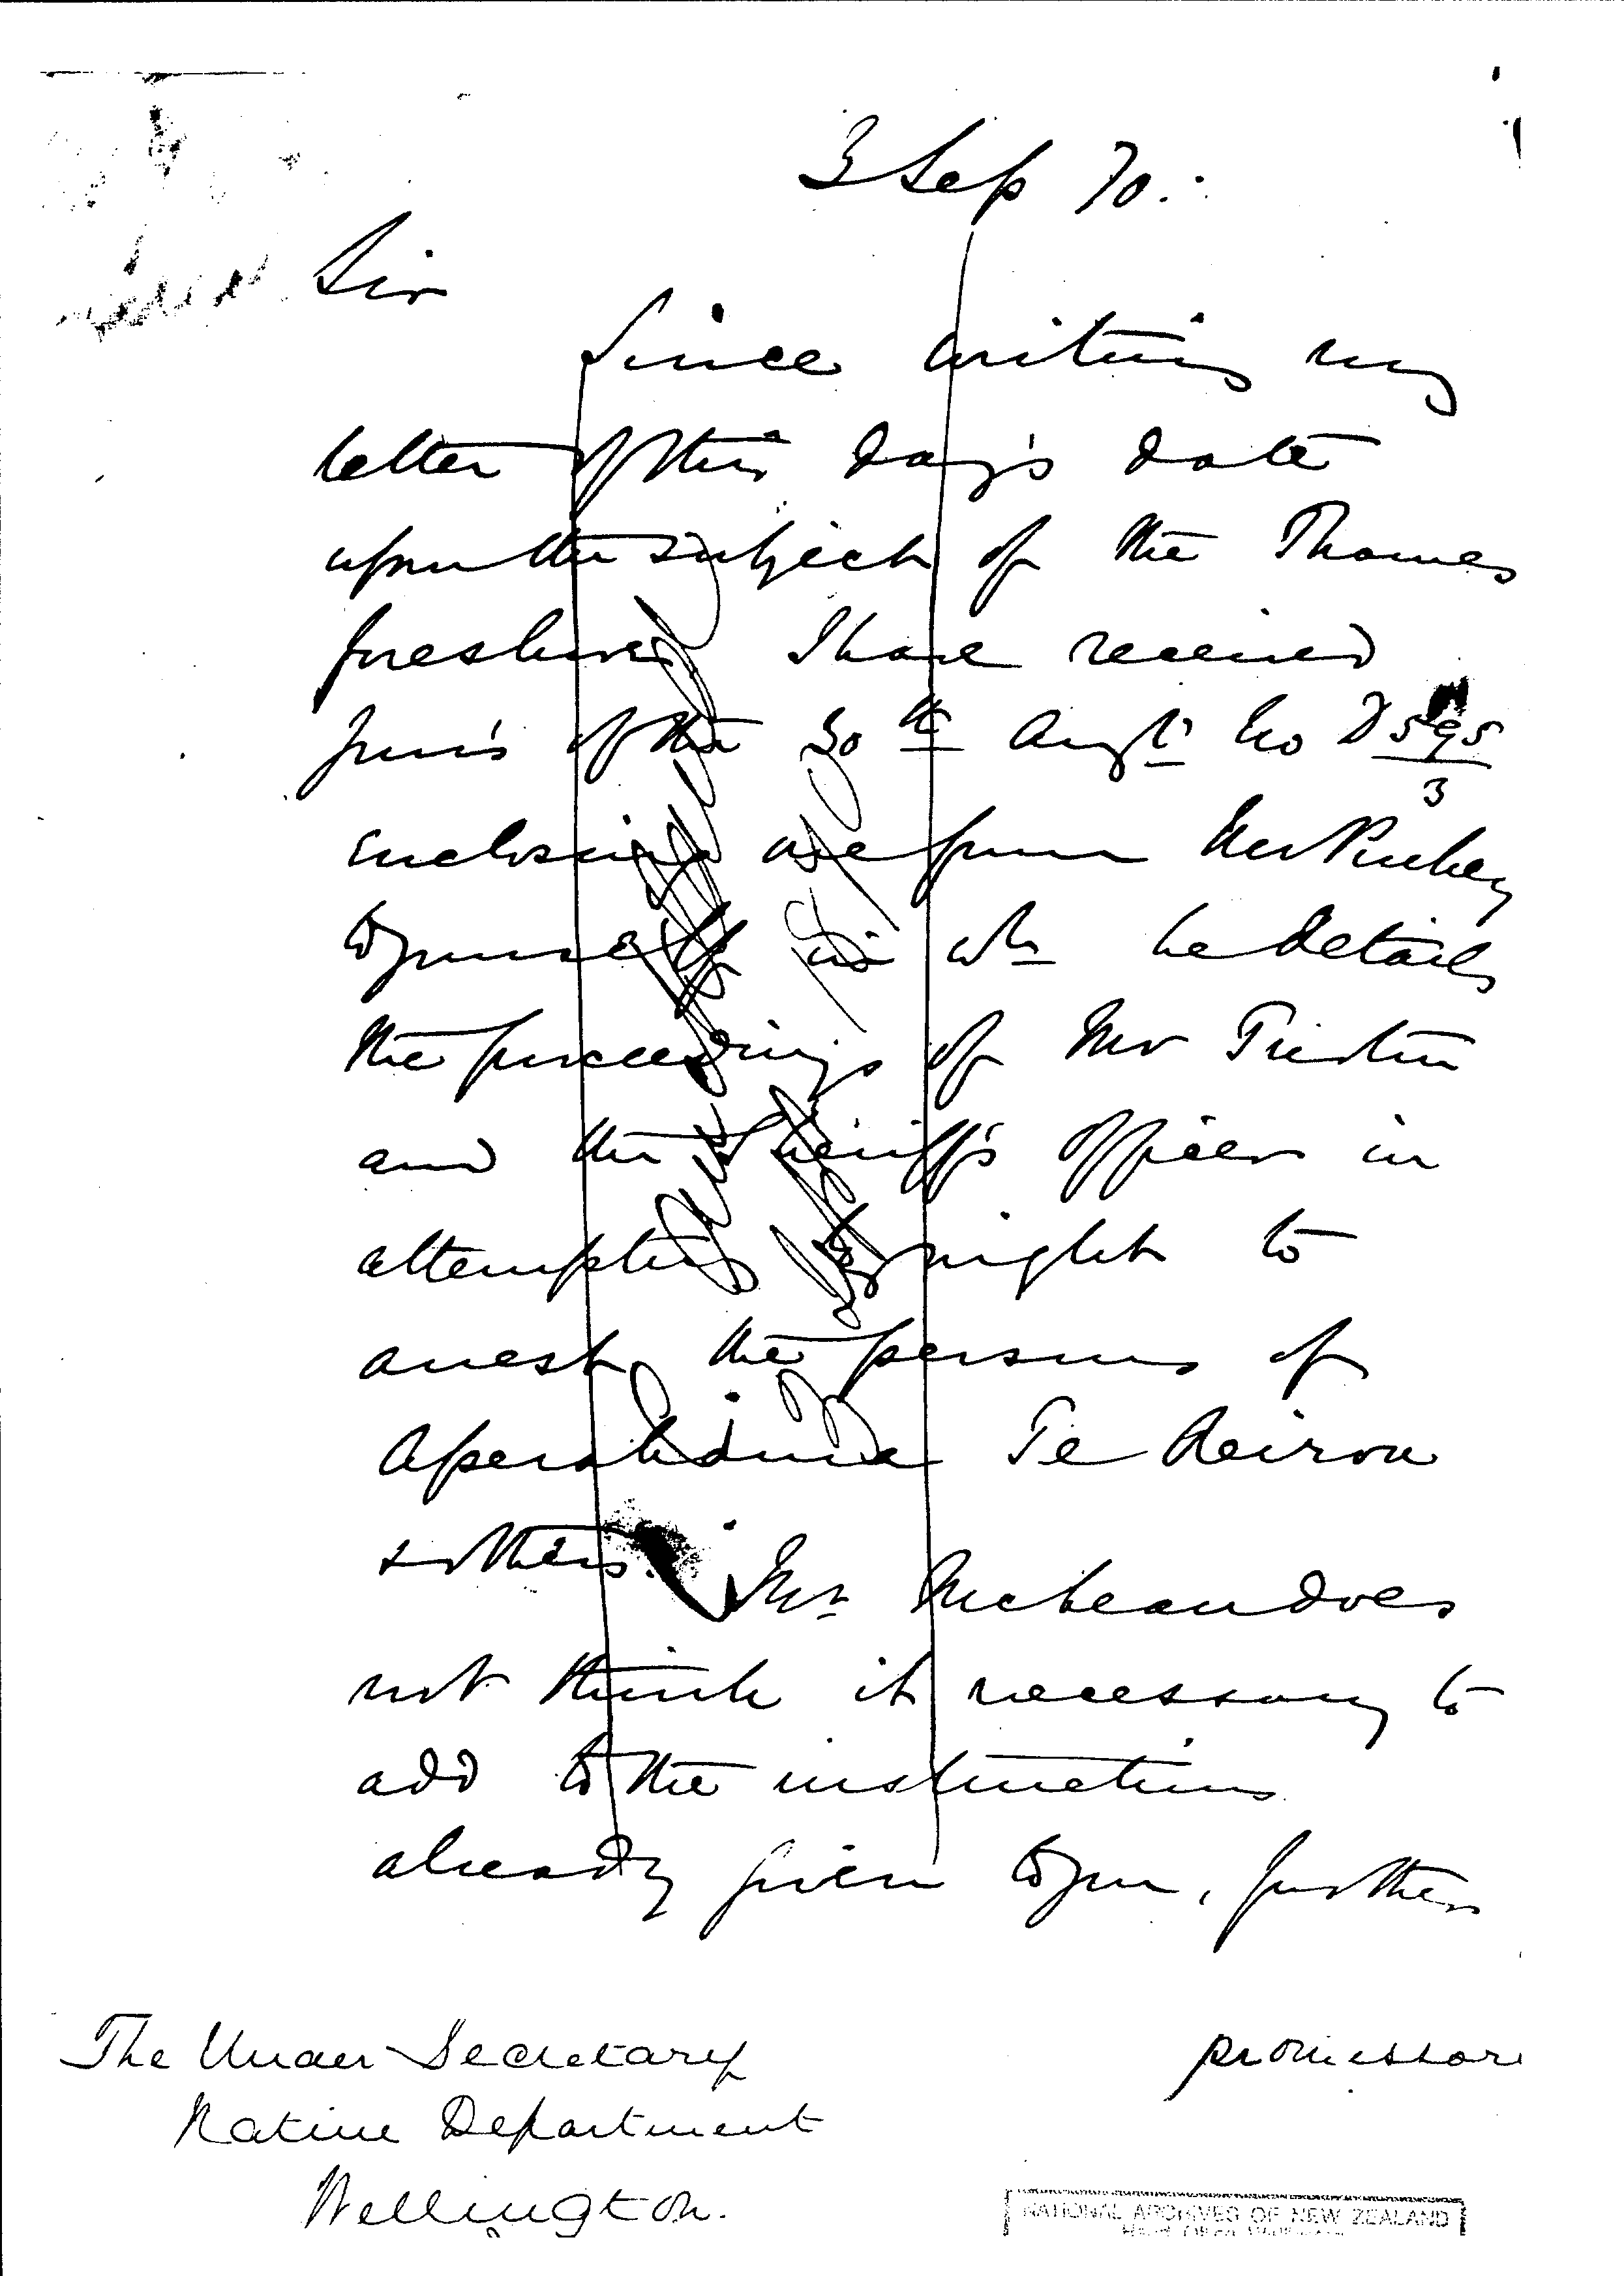 3 Sep 70.
Sir
Since writing my
letter of this day's date
upon the subject of the Thames
foreshore, I have received
yours of the 30th Augt. No D 595/3
enclosing one from Mr Puckey
to yourself in wh he details
the proceedings of Mr
and the Sheriff's officer in
attempting by night to
arrest the persons of
Te Reiroa
& others. Mr. McLean does
not think it necessary to
add to the instructions
already given to you, further
The Under Secretary
Native Department
Wellington.
NATIONAL ARCHIVES OF NEW ZEALAND